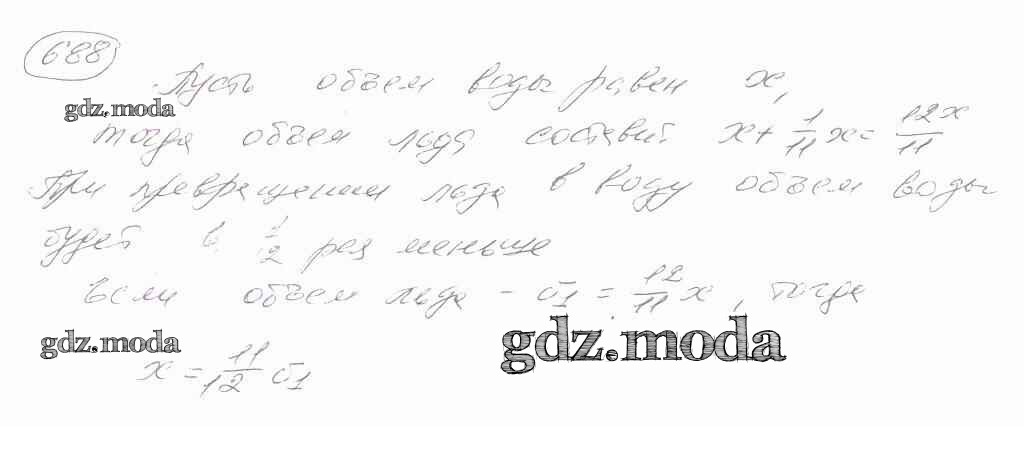 688
Пусть объем воды равен x,
gdz.moda
тогда объем льда составит x + 1/11 x = 12x/11
При превращении льда в воду объем воды
будет в 1/12 раз меньше
Если объем льда - v1 = 12/11 x, тогда
gdz.moda
gdz.moda
x = 11/12 v1